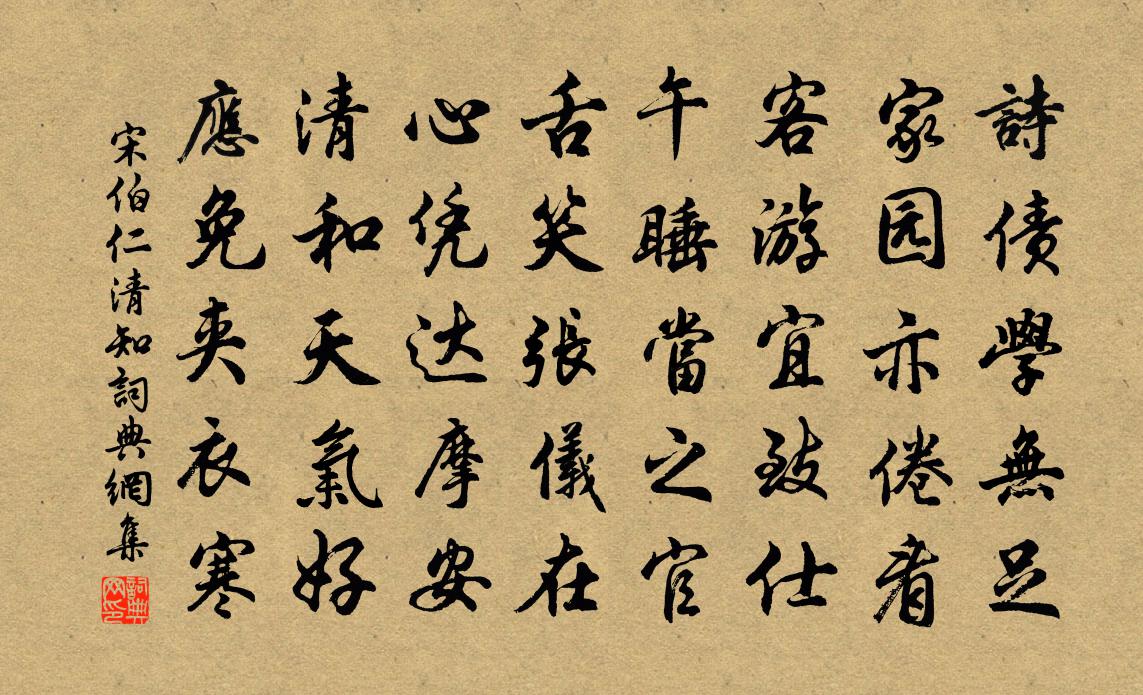 詩债學無足
家园亦倦看
客游宜致仕
午睡當之官
舌笑張儀在
心凭达摩安
清和天氣好
應免夹衣寒
宋伯仁清知詞典網集
詞典
网印